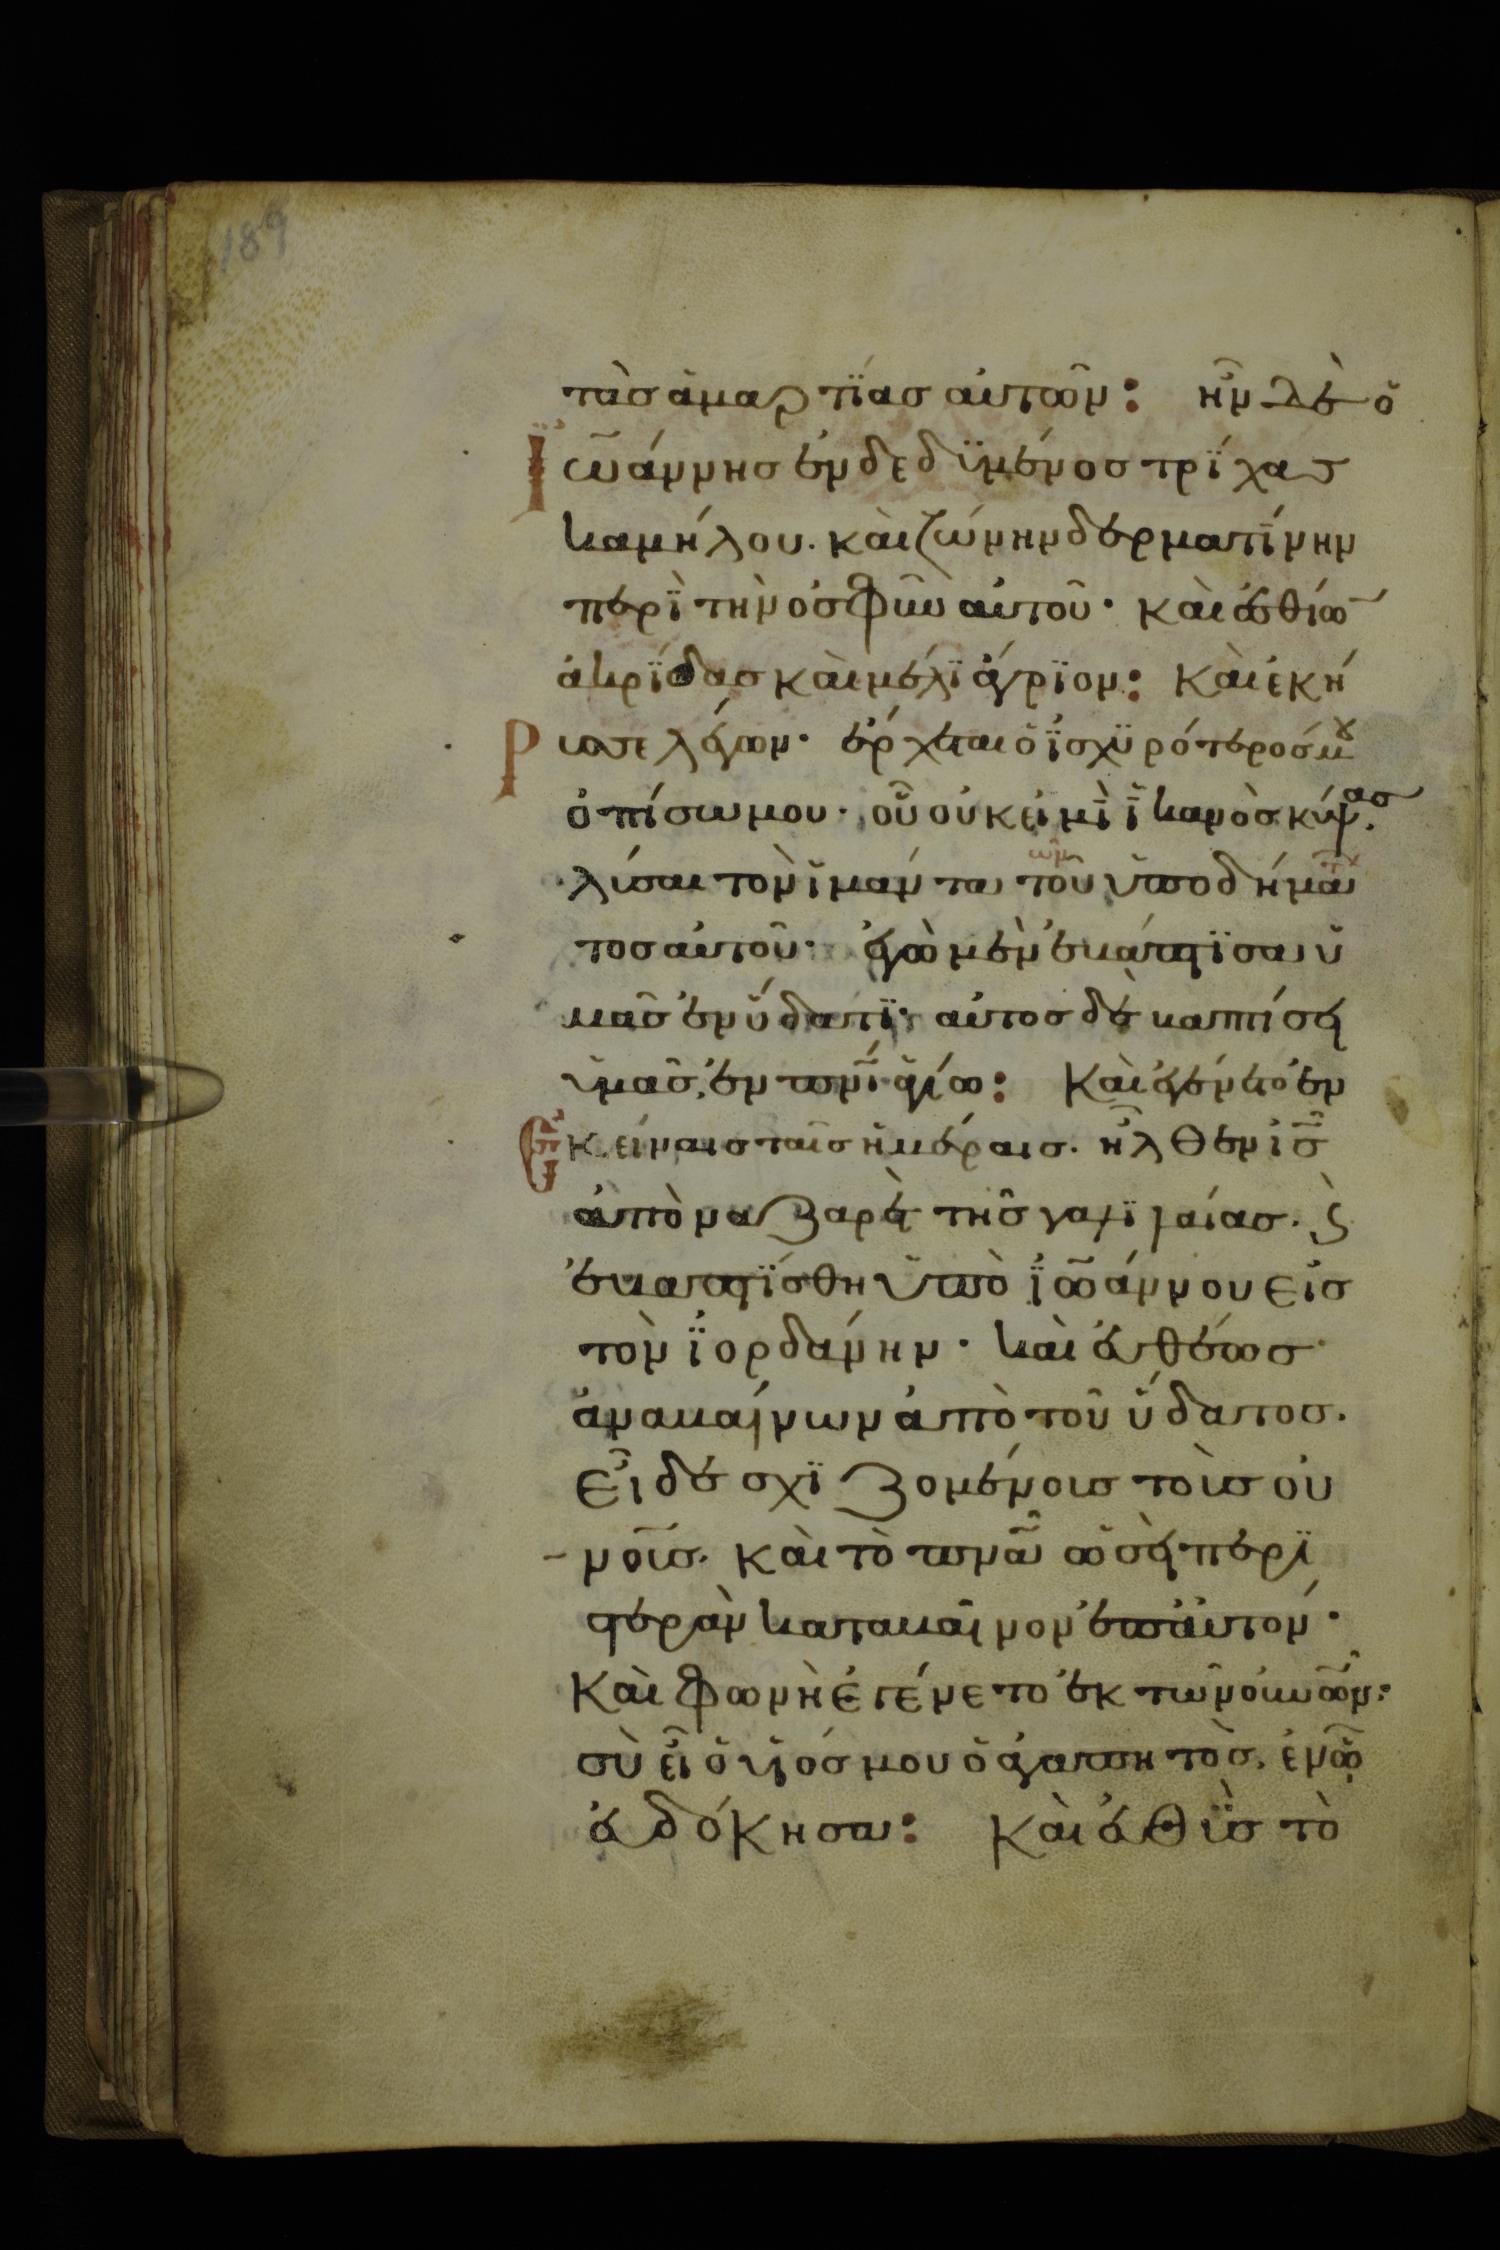 189
τὰσ ἁμαρτϊασ αὐτῶν: ἦν δὲ ὁ
Ϊωάννησ ἐνδεδϋμένοσ τρίχασ
καμήλου. καὶ ζώνην δερματίνην
περὶ τὴν ὀσφῦν αὐτοῦ· καὶ ἐσθίω
ἀκρίδασ καὶ μέλϊ ἄγρϊον: Καὶ ἐκή
Ρυσσε λέγων· ἔρχεται ὁ ἰσχϋρότεροσ μου
ὀπίσω μου· οὗ οὐκ εἰμῒ ἱκανὸσ κύψασ
λύσαι τὸν ἱμάντα τοῦ ὑποδήμα
τοσ αὐτοῦ· ἐγὼ μὲν ἐβάπτϊσα ὑ
μᾶσ ἐν ὕδατϊ· αὐτοσ δὲ βαπτίσει
ὑμᾶσ, ἐν πνι ἁγίω: Καὶ ἐγένετο ἐν
Ἐκείναισ ταῖσ ἡμέραισ. ἦλθεν ἰσ
ἀπὸ ναζαρὲτ τῆσ γαλϊλαίασ. ϛ
ἐβαπτίσθη ὑπὸ ἰωάννου εἰσ
τὸν ἰορδάνην· καὶ εὐθέωσ
ἀναβαίνων ἀπὸ τοῦ ὕδατοσ.
Εἶδε σχϊζομένουσ τοὺσ οὐ
νοῦσ. καὶ τὸ πνα ὡσεὶ περϊ
στερὰν καταβαῖνον ἐπ' αὐτόν·
Καὶ φωνὴ ἐγένετο ἐκ τῶν οὐνων·
σὺ εἶ ὁ υἱόσ μου ὁ ἀγαπητὸσ. ἐν ᾧ
εὐδόκησα: Καὶ εὐθὺσ τὸ